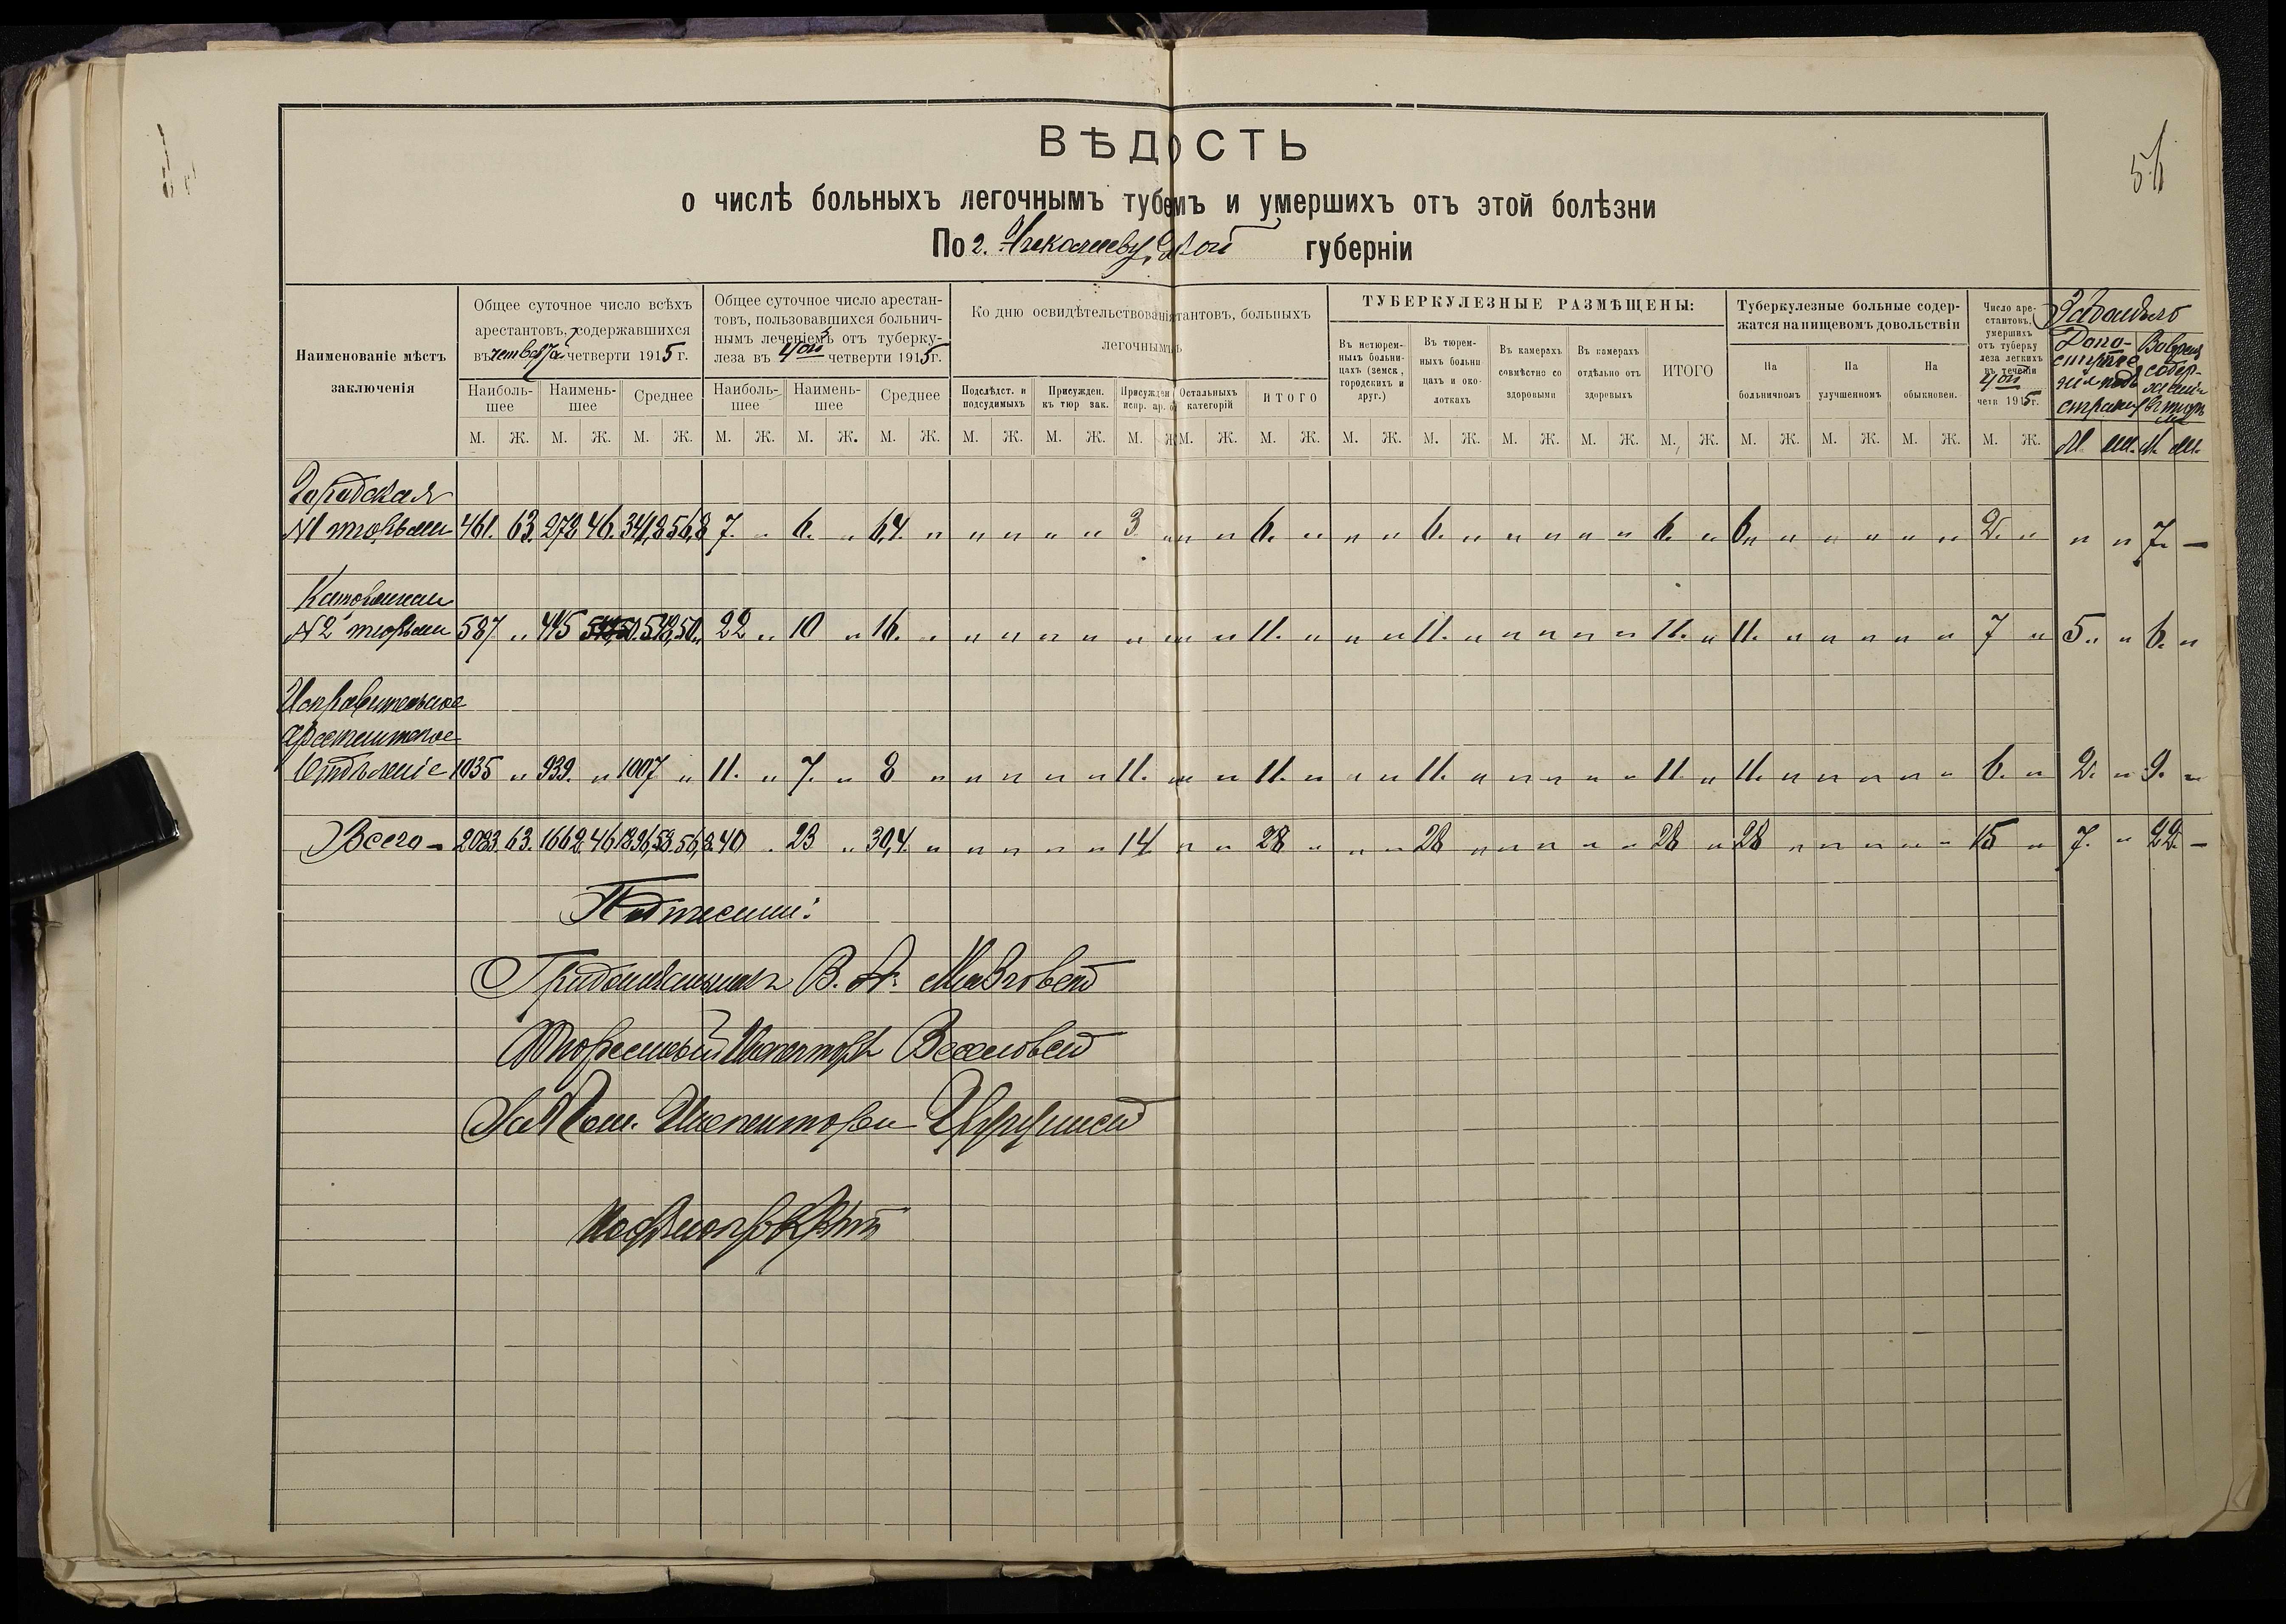 ВѢДОСТЬ
о числѣ больныхъ легочнымъ тубемъ и умершихъ отъ этой болѣзни
По г. Николаеву губерніи
51
Наименованіе мѣстъ
заключенія
Общее суточное число всѣхъ
арестантовъ, содержавшихся
въ четверти 1915 г.
Наиболь-
шее
Наимень-
шее
Среднее
Общее суточное число арестан-
товъ, пользовавшихся больнич-
нымъ леченіемъ отъ туберку-
леза въ 4ой четверти 1915г.
Наиболь-
шее
Наимень-
шее
Среднее
Ко дню освидѣтельствованія тантовъ, больныхъ
легочнымъ
Подслѣдст. и
подсудимыхъ
Присужден.
къ тюр зак.
Присужден
испр. ар. о
Остальныхъ
категорій
ИТОГО
ТУБЕРКУЛЕЗНЫЕ РАЗМѢЩЕНЫ:
Въ нетюрем-
ныхъ больни-
цахъ (земск,
городскихъ и
друг.)
Въ тюрем-
ныхъ больни
цахъ и око-
лоткахъ
Въ камерахъ
совмѣстно со
здоровыми
Въ камерахъ
отдѣльно отъ
здоровыхъ
ИТОГО
Туберкулезные больные содер-
жатся на пищевомъ довольствіи
На
больничномъ
На
улучшенномъ
На
обыкновен.
Число аре-
стантовъ,
умершихъ
отъ туберку
леза легкихъ
въ теченіи
4ой
четв 1915г.
Заболѣло
До по-
ступле
нія подъ
стражу
Во время
содер-
жанія
въ тюрь
мѣ
М. Ж. М. Ж. М. Ж. М. Ж. М. Ж. М. Ж. М. Ж. М. Ж. М. Ж М. Ж. М. Ж. М. Ж. М. Ж. М. Ж. М. Ж. М. Ж. М. Ж. М. Ж. М. Ж. М. Ж. М. ж. М. ж.
Городская
№1 тюрьма 461. 63. 272 46. 341,8 56,8 7. " 6. " 6,4. " " " " " 3 " " " 6. " " " 6. " " " " " 6. " 6 " " " " " 2. " " " 7. —
Каторжная
№2 тюрьма 587 " 445 50. 548,50 " 22 " 10 " 16. " " " " " " " " " 11. " " " 11. " " " " " 11. " 11. " " " " " 7 " 5. " " 6. "
Исправительное
арестантское
Отдѣленіе 1035 " 939. " 1007 " 11. " 7. " 8 " " " " " 11. " " " 11. " " " 11. " " " " " 11. " 11. " " " " " 6. " 2. " 9. "
Всего - 2083. 63. 1662. 46 1896,53. 56,8. 40 " 23 " 30,4. " " " " " 14 " " 28 " " " 28 " " " " " 28 " 28 " " " " " 15 " 7. " 22. —
Подписали:
Градоначальникъ В. А.
Тюремный Инспекторъ
За Пом. Инспектора